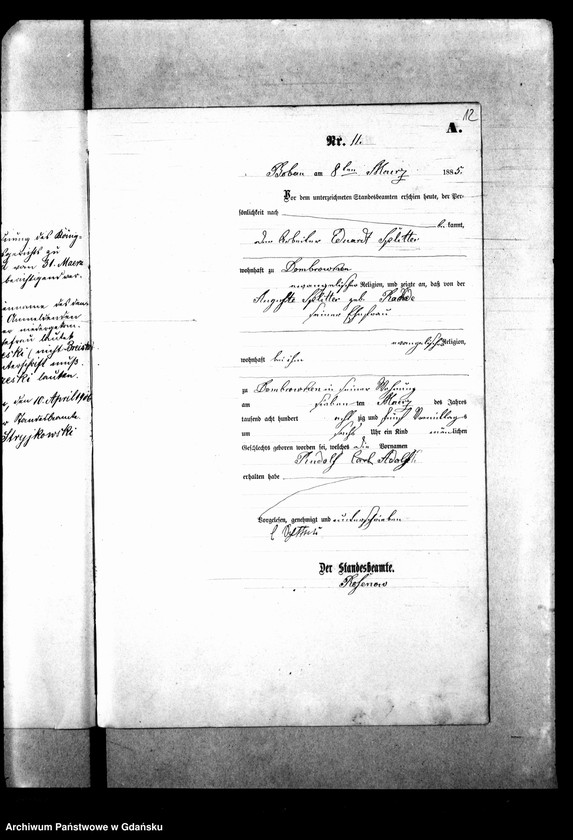 12
A.
Nr. 11.
am 8ten Maerz 1885.
Vor dem unterzeichneten Standesbeamten erschien heute, der Per-
sönlichkeit nach
kannt,
der Arbeiter Eduardt Splitter
wohnhaft zu Dombrowken
evangelischer Religion, und zeigte an, daß von der
Auguste Splitter geb.
seiner Ehefrau
evangelischer Religion,
wohnhaft bei ihm
zu Dombrowken in seiner Wohnung
am sieben ten Maerz des Jahres
tausend acht hundert acht zig und fünf Vormittags
um sechs Uhr ein Kind männlichen
Geschlechts geboren worden sei, welches die Vornamen
Rudolf Carl Adolf
erhalten habe
Vorgelesen, genehmigt und unterschrieben
Der Standesbeamte.
Rosenow
des König-
zu
vom 31. Maerz
berechtigend ver-
name des dem
Anmeldenden
lautet
(nicht
lauten.
den 10. April
Standesbeamte
Stryjkowski
Archiwum Państwowe w Gdańsku